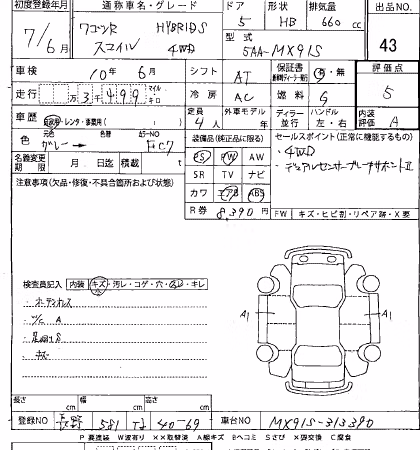 初度登録年月 通称車名・グレード ドア 形状 排気量 出品NO
7/6月 ワゴンR HYBRIDS 5 HB 660 cc
スマイル 4WD 型式 43
5AA-MX91S
車検 10年 6月 シフト AT 保証書 有・無 評価点
走行 万 3千 499 マイル キロ 冷房 AC 燃料 G 5
車歴 自家用・レンタ・事業用( ) 定員 外車モデル ディラー 並行 ハンドル 左・右 内装評価
4人 A
色 元色 カラーNO 装備品(純正品に限る) セールスポイント(正常に機能するもの)
グレー→ PS PW AW ・4WD
名義変更期限 月 日迄 積載 t SR TV ナビ ・デュアルセンサーブレーキサポートII
注意事項(欠品・修復・不具合箇所および状態) カワ エアB ABS
R券 8,390円 FW キズ・ヒビ割・リペア跡・X要
検査員記入 内装 キズ・汚レ・コゲ・穴・ キレ
A1 A1
長さ cm 幅 cm 高さ cm
登録NO 長野 581 40-69 車台NO MX91S-313390
P要塗装 W波有り ××取替済 A線キズ Bヘコミ Sさび ×要交換 C腐食